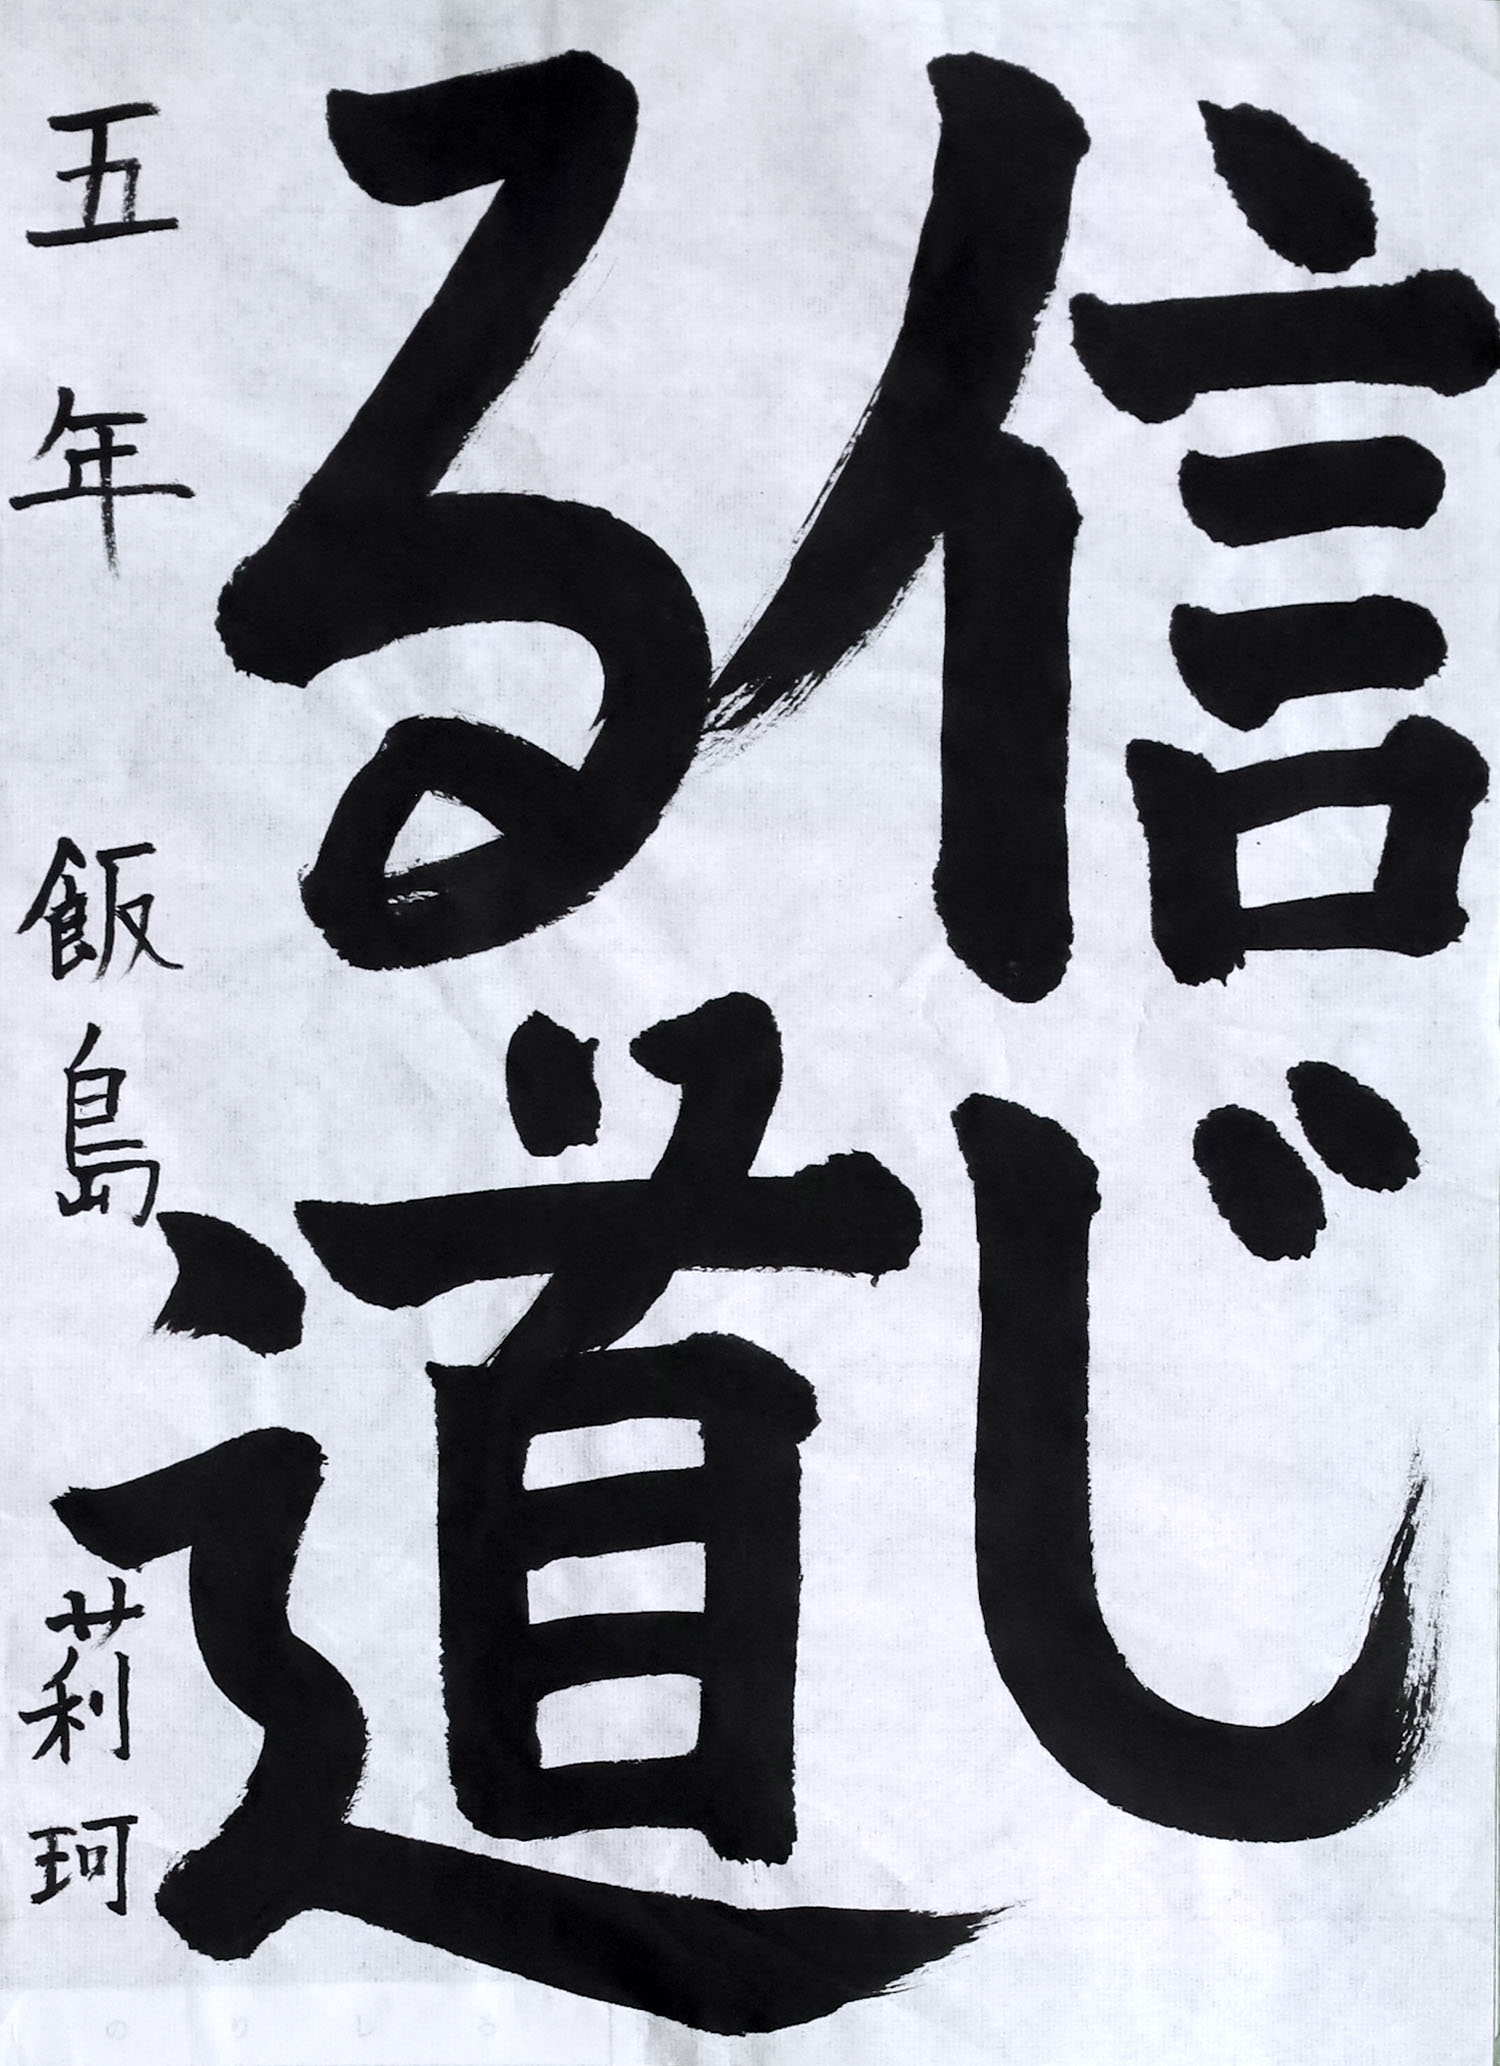 信じ
る道
五年 飯島 莉珂
のりしろ